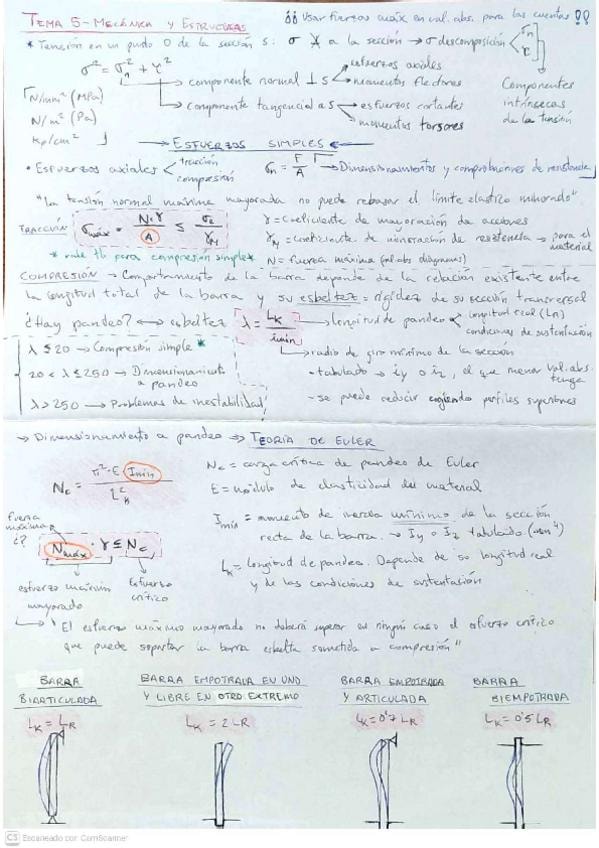 TEMA 5 - MECÁNICA y ESTRUCTURAS
¡¡ Usar fuerzas máx en val. abs. para las cuentas !!
* Tensión en un punto O de la sección S: σ a la sección → σ descomposición σn τ
σ² = σn² + τ²
→ componente normal ⊥ S → esfuerzos axiales → momentos flectores
→ componente tangencial a S → esfuerzos cortantes → momentos torsores
Componentes intrínsecas de la tensión
N/mm² (MPa)
N/m² (Pa)
Kp/cm²
→ ESFUERZOS SIMPLES ←
• Esfuerzos axiales < tracción compresión
σn = F/A → Dimensionamientos y comprobaciones de resistencia
"La tensión normal máxima mayorada no puede rebasar el límite elástico minorado"
TRACCIÓN
σmáx = N·γ / A ≤ σe / γM
γ = Coeficiente de mayoración de acciones
γM = Coeficiente de minoración de resistencia → para el material
N = fuerza máxima (val. abs diagramas)
* vale tb para compresión simple *
COMPRESIÓN → Comportamiento de la barra depende de la relación existente entre
la longitud total de la barra y su esbeltez: rigidez de su sección transversal
¿Hay pandeo? ↔ esbeltez λ = LK / imin → longitud de pandeo < longitud real (LR) condiciones de sustentación
→ radio de giro mínimo de la sección
λ ≤ 20 → Compresión simple *
20 < λ ≤ 250 → Dimensionamiento a pandeo
λ > 250 → Problemas de inestabilidad
• tabulado → iy o iz, el que menor val. abs. tenga
- se puede reducir cogiendo perfiles superiores
→ Dimensionamiento a pandeo → TEORÍA DE EULER
Nc = π²·E·Imin / L²K
Nc = carga crítica de pandeo de Euler
E = módulo de elasticidad del material
Imin = momento de inercia mínimo de la sección
recta de la barra. → Iy o Iz tabulado (cm⁴)
LK = longitud de pandeo. Depende de su longitud real
y de las condiciones de sustentación
fuerza máxima ¿?
Nmáx · γ ≤ Nc
esfuerzo máximo mayorado
Esfuerzo crítico
"El esfuerzo máximo mayorado no deberá superar en ningún caso el esfuerzo crítico
que puede soportar la barra esbelta sometida a compresión"
BARRA BIARTICULADA
LK = LR
BARRA EMPOTRADA EN UNO Y LIBRE EN OTRO EXTREMO
LK = 2 LR
BARRA EMPOTRADA Y ARTICULADA
LK = 0'7 LR
BARRA BIEMPOTRADA
LK = 0'5 LR
CS Escaneado con CamScanner